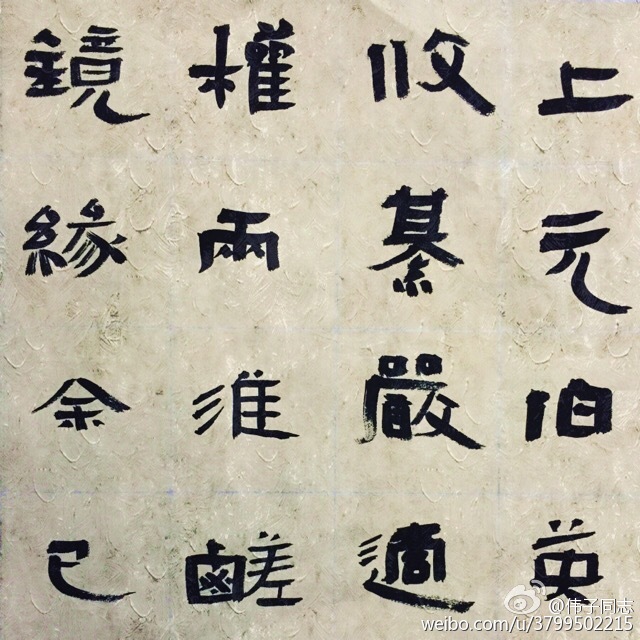 上元伯英
收綦嚴適
權兩淮鹺
鏡緣余已
@伟子同志
weibo.com/u/3799502215